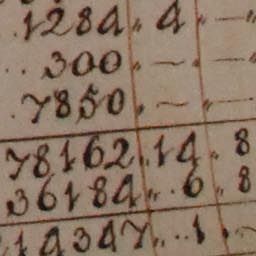 1284 „ 4 „ — „
300 „ — „ —
7850 „ — „ —
78162 „ 14 „ 8
36184 „ 6 „ 8
114347 „ 1 „